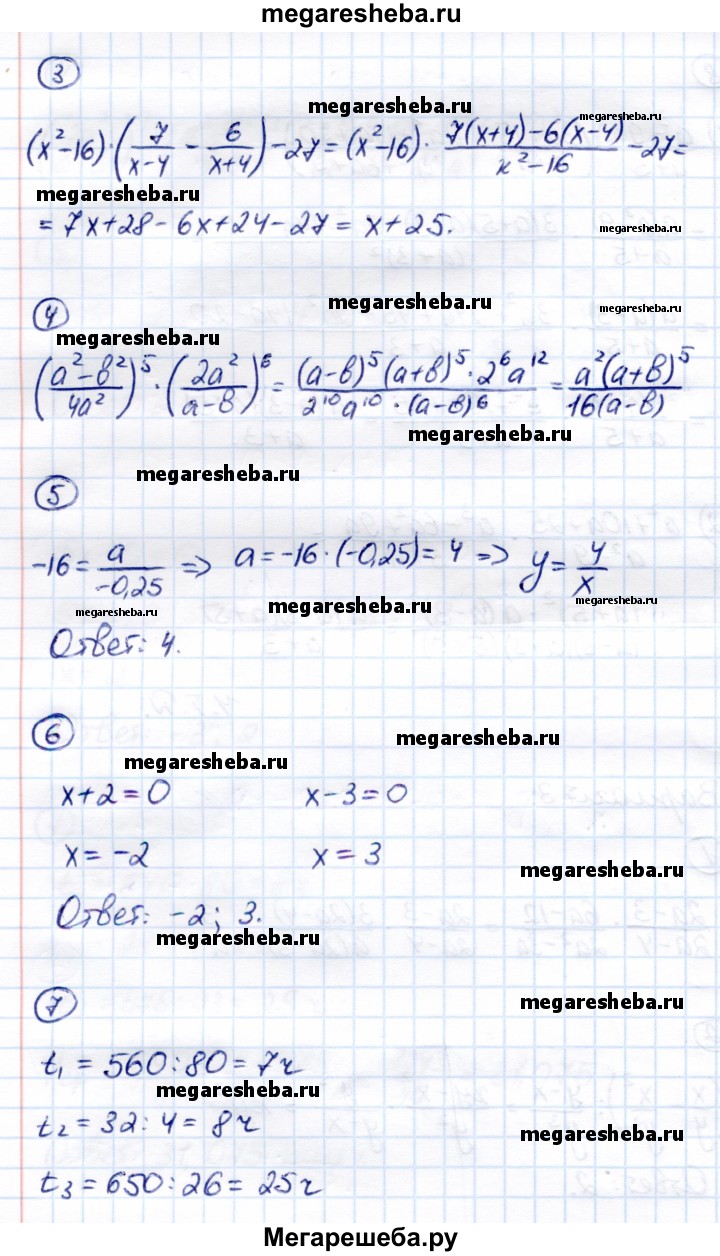 megaresheba.ru
3
megaresheba.ru
megaresheba.ru
(x²-16)·(7/(x-4) - 6/(x+4))-27=(x²-16)· (7(x+4)-6(x-4))/(x²-16) -27=
megaresheba.ru
= 7x+28-6x+24-27= x+25.
megaresheba.ru
megaresheba.ru
megaresheba.ru
4
megaresheba.ru
((a²-b²)/4a²)⁵·(2a²/(a-b))⁶=((a-b)⁵(a+b)⁵·2⁶a¹²)/(2¹⁰a¹⁰·(a-b)⁶)=(a²(a+b)⁵)/(16(a-b))
megaresheba.ru
megaresheba.ru
5
-16=a/(-0,25) => a=-16·(-0,25)=4 => y=4/x
megaresheba.ru
megaresheba.ru
megaresheba.ru
Ответ: 4.
6
megaresheba.ru
megaresheba.ru
x+2=0 x-3=0
x=-2 x=3
megaresheba.ru
Ответ: -2; 3.
megaresheba.ru
7
megaresheba.ru
t₁=560:80=7ч
megaresheba.ru
t₂=32:4=8ч
megaresheba.ru
t₃=650:26=25ч
Мегарешеба.ру